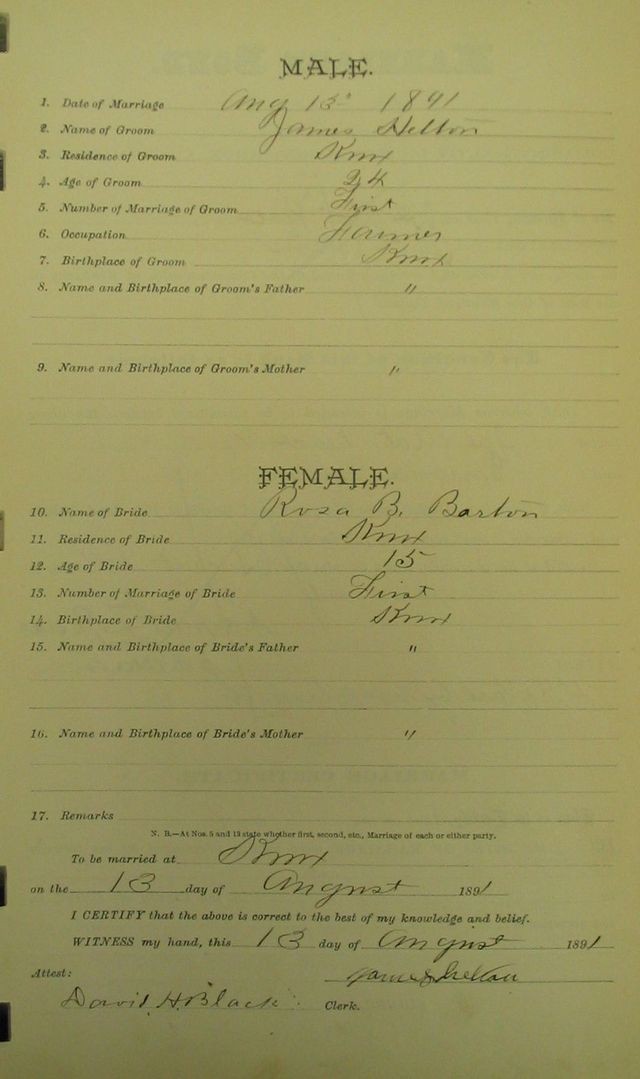 MALE.
1. Date of Marriage Aug 13" 1891
2. Name of Groom James Helton
3. Residence of Groom Knox
4. Age of Groom 24
5. Number of Marriage of Groom First
6. Occupation Farmer
7. Birthplace of Groom Knox
8. Name and Birthplace of Groom's Father "
9. Name and Birthplace of Groom's Mother "
FEMALE.
10. Name of Bride Rosa B. Barton
11. Residence of Bride Knox
12. Age of Bride 15
13. Number of Marriage of Bride First
14. Birthplace of Bride Knox
15. Name and Birthplace of Bride's Father "
16. Name and Birthplace of Bride's Mother "
17. Remarks
N. B.—At Nos. 5 and 13 state whether first, second, etc., Marriage of each or either party.
To be married at Knox
on the 13 day of August 1891
I CERTIFY that the above is correct to the best of my knowledge and belief.
WITNESS my hand, this 13 day of August 1891
James Helton
Attest:
David H. Black Clerk.